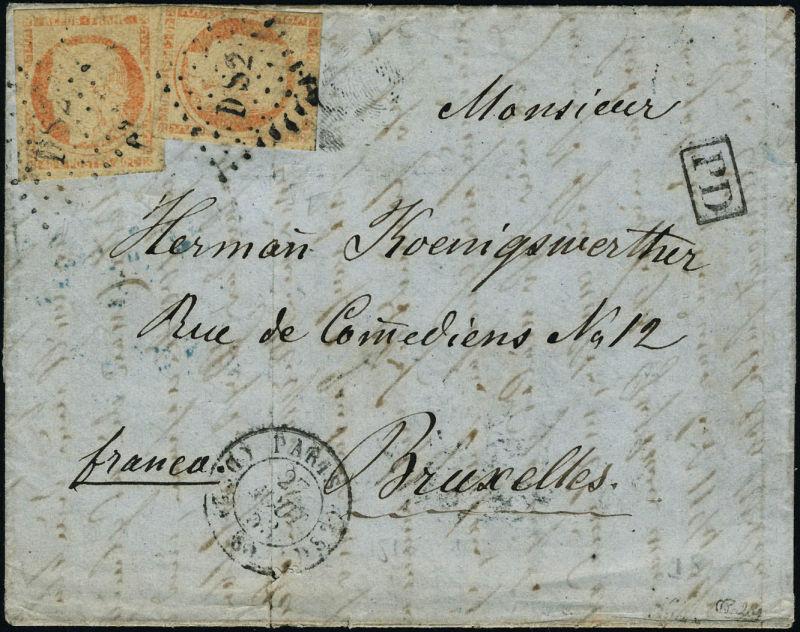 DS2
DS2
Monsieur
PD
Hermañ Koenigswerther
Rue de Comēdiens No 12
franco.
Bruxelles.
PARIS